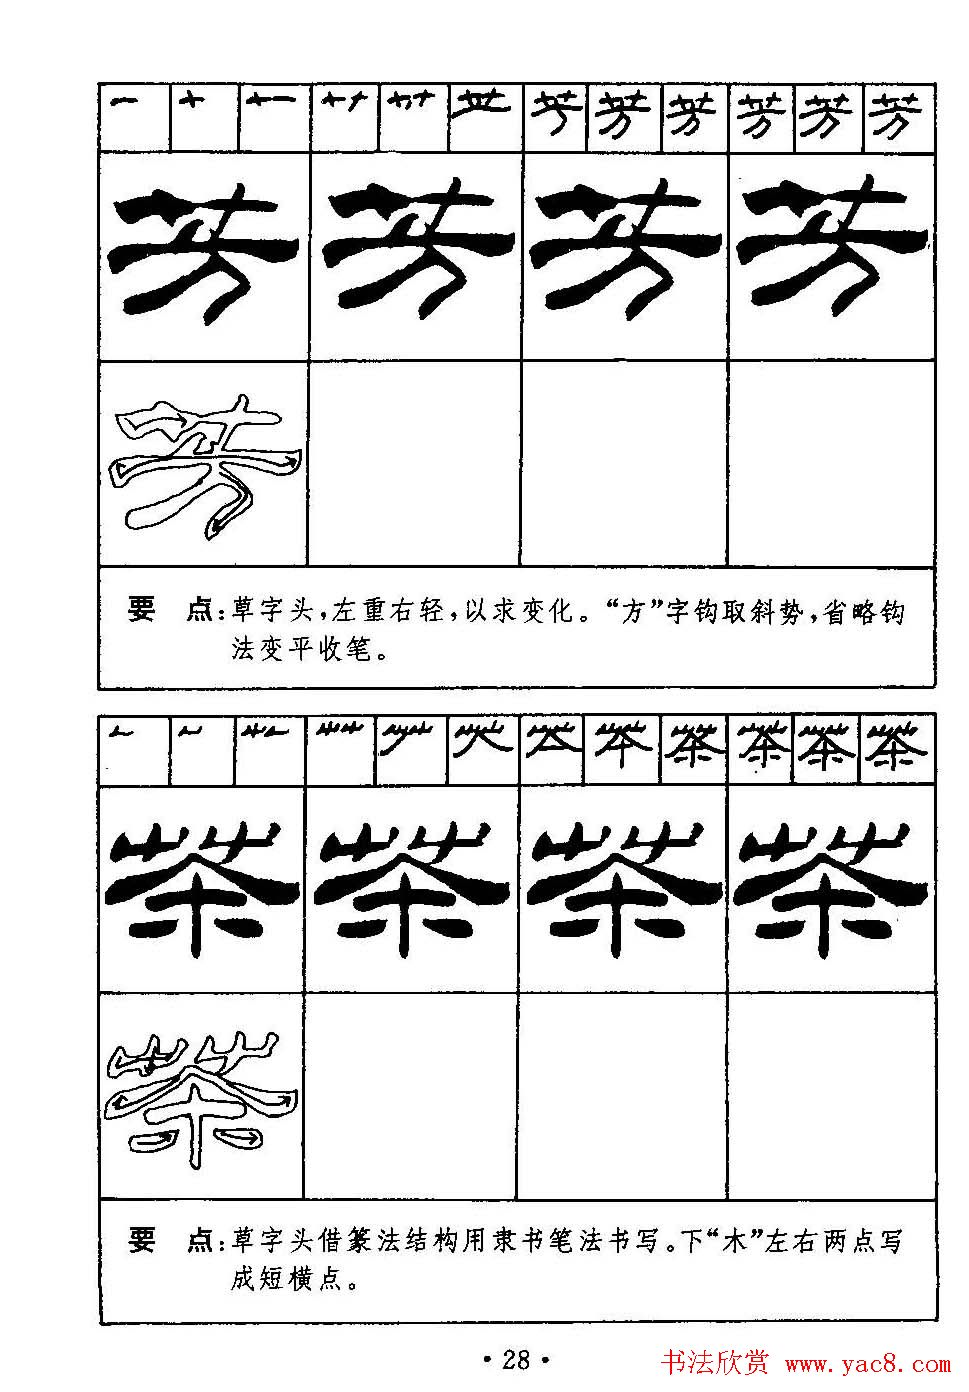 芳 芳 芳 芳 芳
芳 芳 芳 芳
芳
要 点：草字头，左重右轻，以求变化。“方”字钩取斜势，省略钩
法变平收笔。
茶 茶 茶 茶
茶 茶 茶 茶
茶
要 点：草字头借篆法结构用隶书笔法书写。下“木”左右两点写
成短横点。
·28·
书法欣赏 www.yac8.com